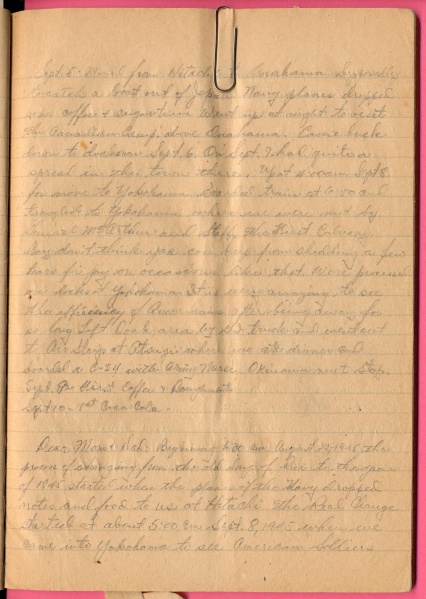 Sept. 5 - Moved from Hitachi to Onahama Supposedly
to catch a boat out of Japan Navy planes dropped
more coffee & cigarettes Went up at night to visit
the Canadian Camp above Onahama. Came back
down to Onahama Sept. 6. On Sept. 7 had quite a
spread in the town there. Sept 8
for move to Yokohama Boarded train at 6:00 and
traveled to Yokohama where we were met by
General McArthur and Staff, the First Calvary
Boy don't think you can keep from shedding a few
tears for joy on occasions like that. We
on docks at Yokohama It is very amazing to see
the efficiency of Americans after being away for
so long Left Dock area by truck and went out
to Air Strip at Atsugi where we ate dinner and
boarded a C-54 with Army Nurse. Okinawa next stop.
Sept. 9th First Coffee & Doughnuts
Sept 10 - 1st Coca Cola.
Dear Mom & Dad: Beginning 6:30 am August 29, 1945 the
process of changing from the old days of to the
of 1945 started when the planes of the Navy dropped
notes and food to us at Hitachi. The Real Change
started at about 5:00 Sept. 8, 1945 when we
came into Yokohama to see American Soldiers